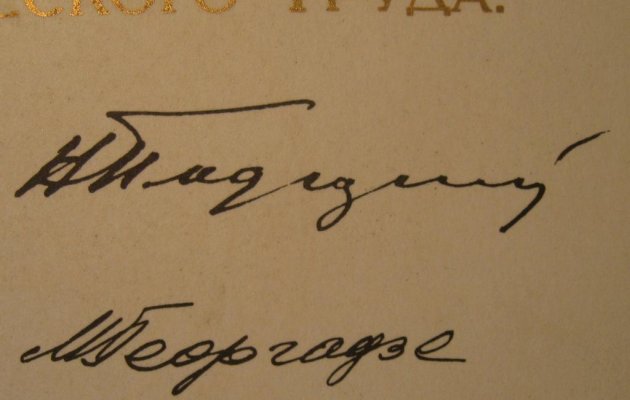 ЕСКОГО ТРУДА.
НПодгорный
МГеоргадзе